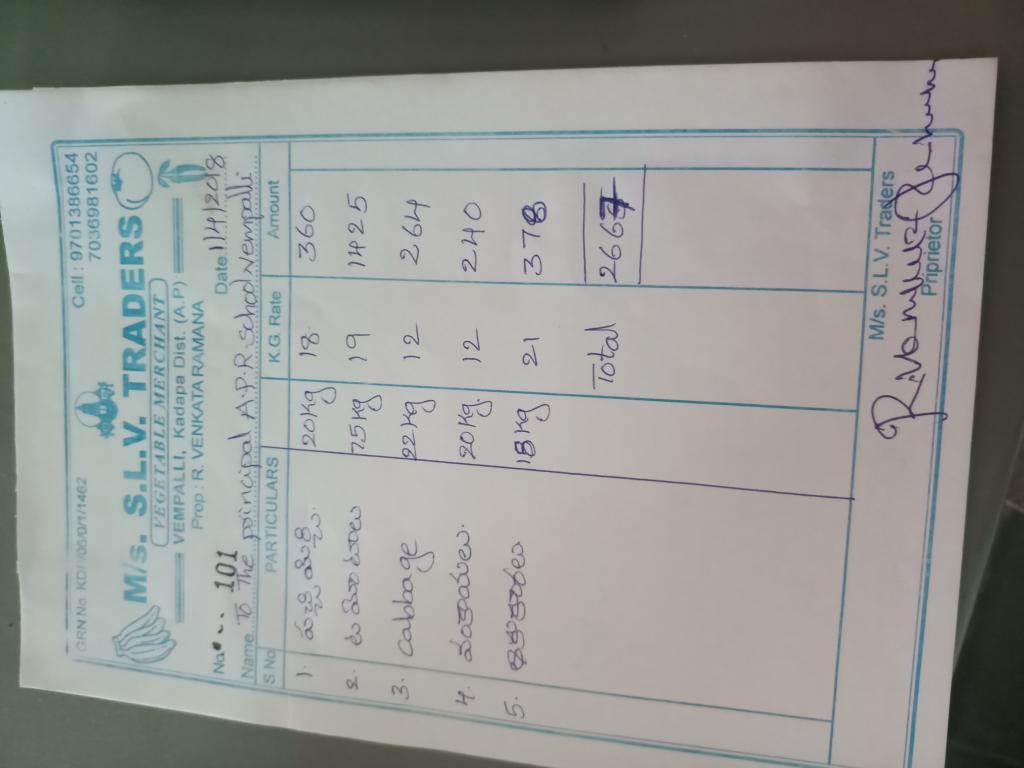 GRN No. KDP/06/0/1/1462 Cell : 9701386654
7036981602
M/s. S.L.V. TRADERS
VEGETABLE MERCHANT
VEMPALLI, Kadapa Dist. (A.P)
Prop : R. VENKATARAMANA
No. 101 Date. 1/4/2018
Name To The principal A.P.R School Vempalli
S.No PARTICULARS K.G. Rate Amount
1. పచ్చి మిర్చి 20kg 18 360
2. టమాటాలు 75kg 19 1425
3. Cabbage 22kg 12 264
4. వంకాయలు 20kg. 12 240
5. 18kg 21 378
Total 2667
M/s. S.L.V. Traders
Priprietor